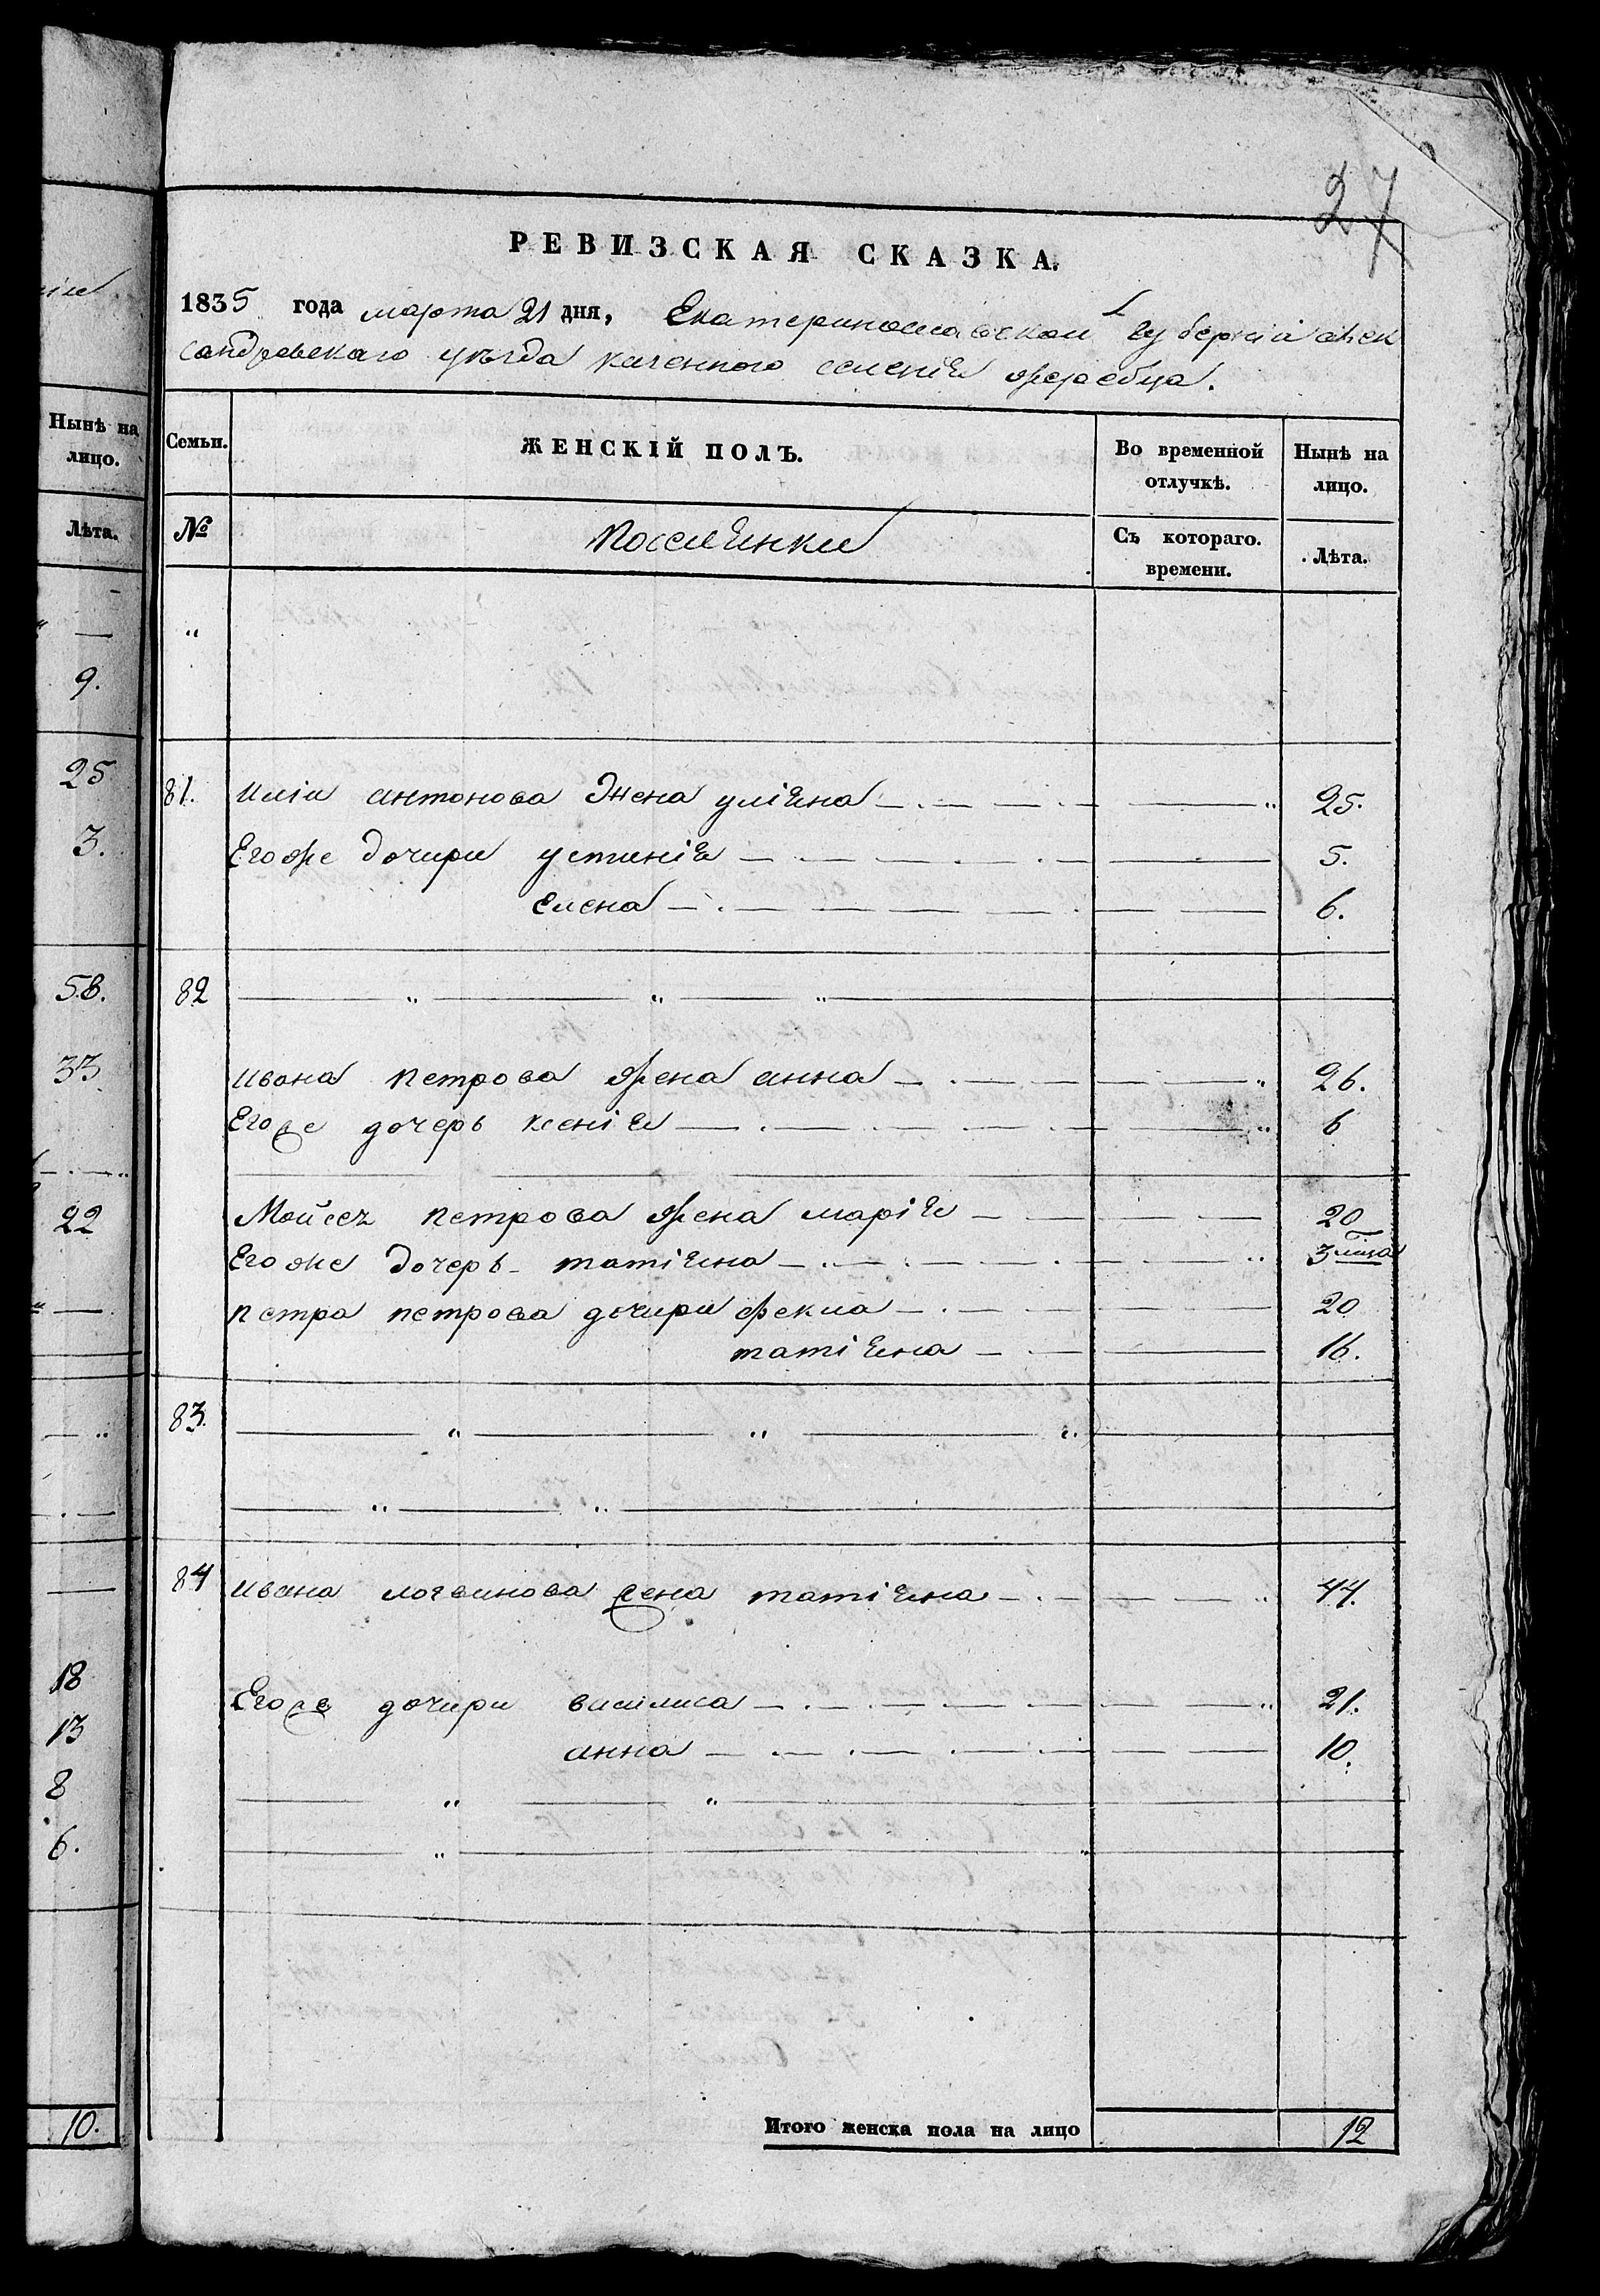 27
РЕВИЗСКАЯ СКАЗКА.
1835 года марта 21 дня, Екатеринославской губерніи алек
сандровскаго уѣзда казенного селенія жеребца.
Нынѣ на
лицо.
Лѣта.
9.
25
3.
58.
33
22
18
13
8
6.
10.
Семьи. ЖЕНСКІЙ ПОЛЪ. Во временной отлучкѣ. Нынѣ на лицо.
№ Поселянки Съ котораго. времени. Лѣта.
81. иліи антонова жена уліяна 25.
Егоже дочири устинія 5.
елена 6.
82
ивана петрова жена анна 26.
Егоже дочерь ксенія 6
Мойсея петрова жена марія 20
Егоже дочерь татіяна 3 мѣсяца
петра петрова дочири фекла 20
татіяна 16.
83.
84 ивана логвинова жена татіяна 44.
Егоже дочири василиса 21.
анна 10.
Итого женска пола на лицо 12